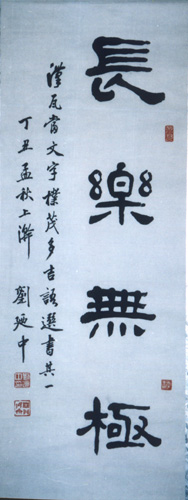 長樂無極
漢瓦當文字樸茂多吉語選書其一
丁丑孟秋上澣
劉廼中